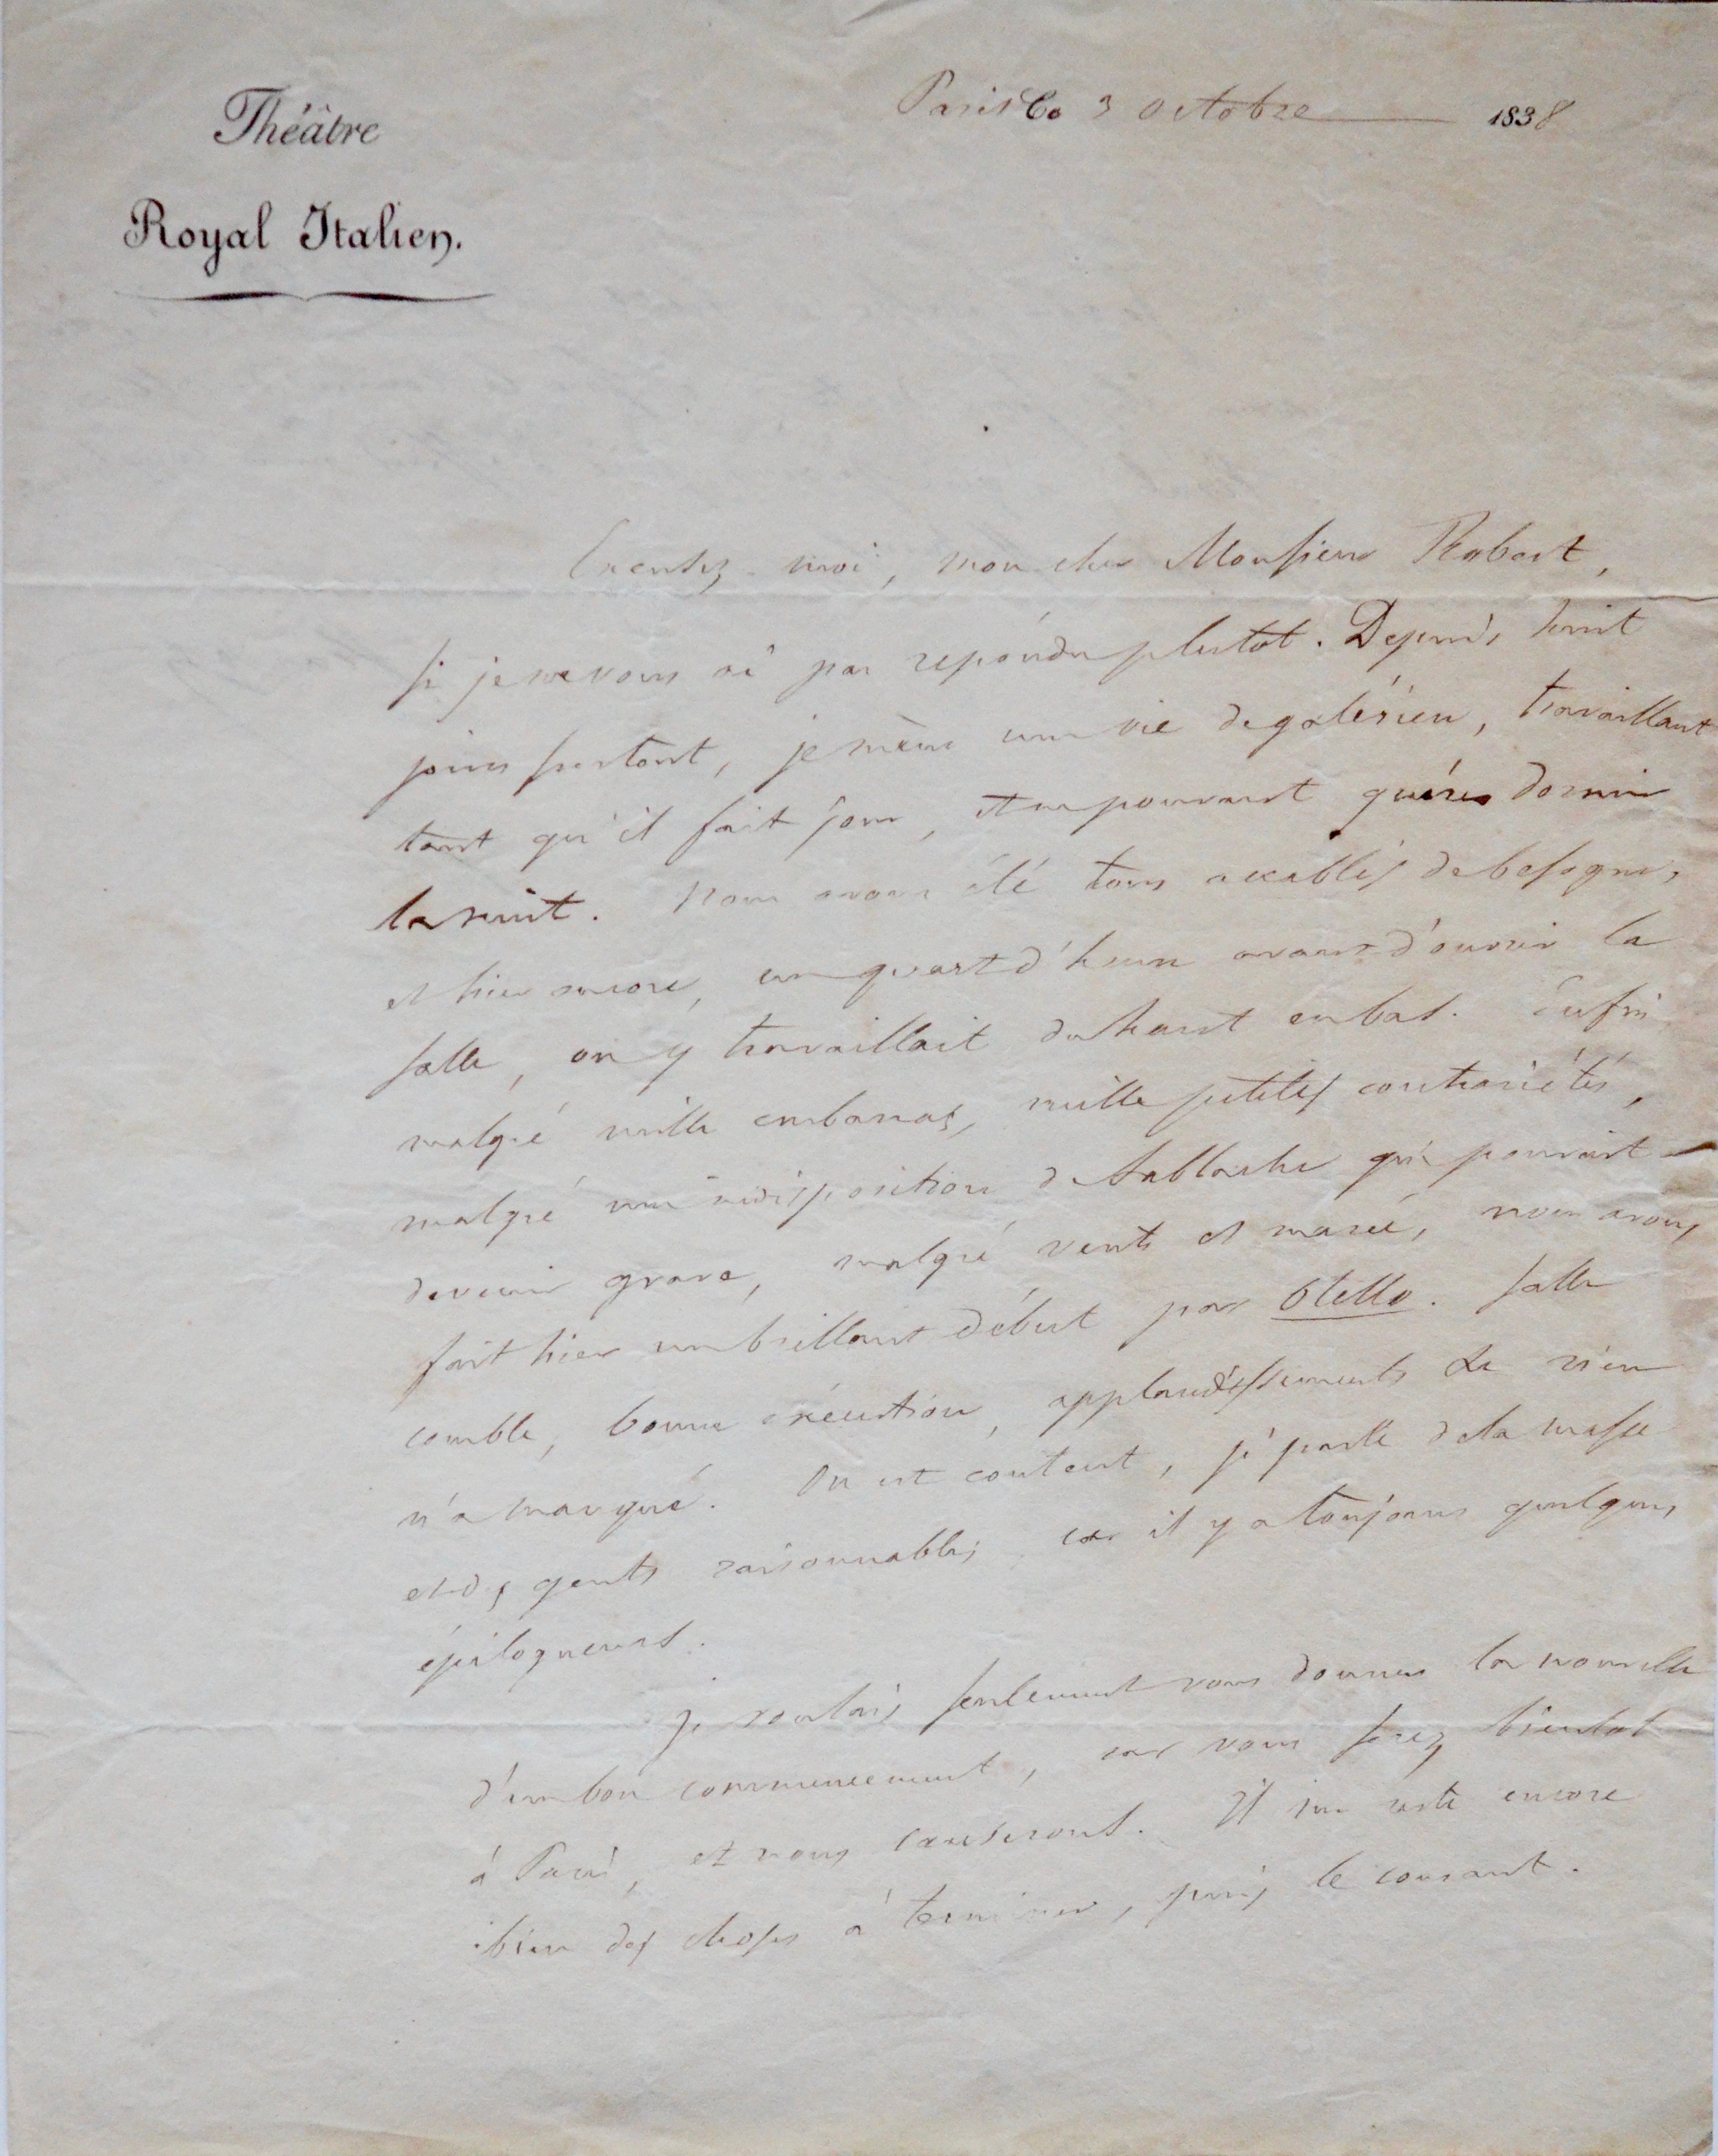 Théâtre
Royal Italien.
Paris le 3 octobre 1838
Excusez-moi, mon cher Monsieur Robert,
si je ne vous ai pas repóndu plustot. Depuis huit
jours surtout, je mène une vie de galérien, travaillant
tant qu'il fait jour, et ne pouvant guères dormir
la nuit. Nous avons été tous accablés de besogne,
et hier encore, un quart d'heure avant d'ouvrir la
salle, on y travaillait du haut en bas. Enfin
malgré mille embarras, mille petites contrariétés,
malgré une indisposition de Lablache qui pouvait
devenir grave, malgré vents et marée, nous avons
fait hier un brillant début par Otello. Salle
comble, bonne exécution, applaudissements de rien
n'a manqué. On est content, je parle de la masse
et des gents raisonnables, car il y a toujours quelques
épilogueurs.
Je voulais seulement vous donner la nouvelle
d'un bon commencement, car vous serez bientot
à Paris, et nous causerons. Il me reste encore
bien des choses à terminer, puis le courant.